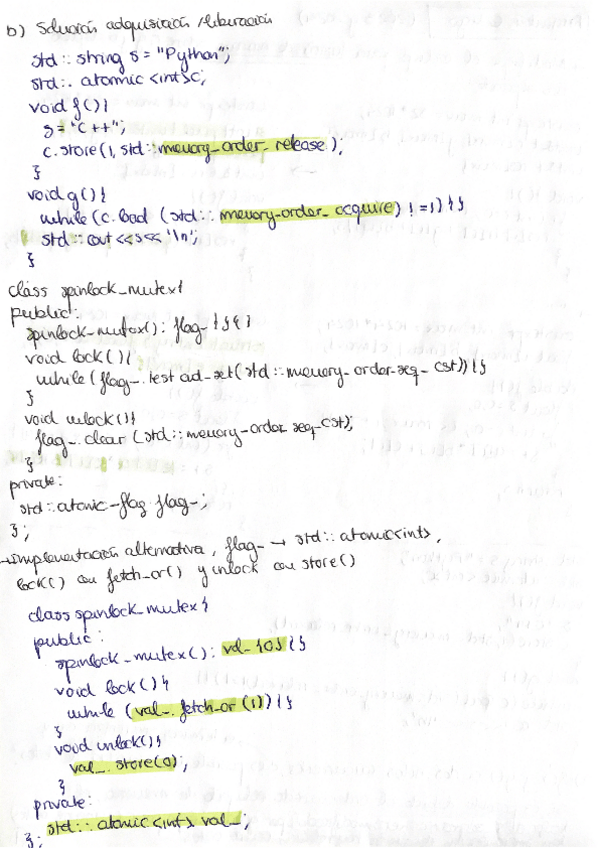 b) Solución adquisición/liberación
std::string s = "Python";
std::atomic <int> c;
void f(){
s = "C++";
c.store(1, std::memory_order_release);
}
void g(){
while(c.load (std::memory_order_acquire) != 1){}
std::cout << s << '\n';
}
class spinlock_mutex{
public:
spinlock_mutex(): flag_{}{}
void lock(){
while(flag_.test and_set(std::memory_order_seq_cst)){}
}
void unlock(){
flag_.clear (std::memory_order_seq_cst);
}
private:
std::atomic_flag flag_;
};
→ Implementación alternativa, flag_ → std::atomic<int>,
lock() con fetch_or() y unlock con store()
class spinlock_mutex{
public:
spinlock_mutex(): val_{0}{}
void lock(){
while (val_.fetch_or(1)){}
}
void unlock(){
val_.store(0);
}
private:
std::atomic<int> val_;
};